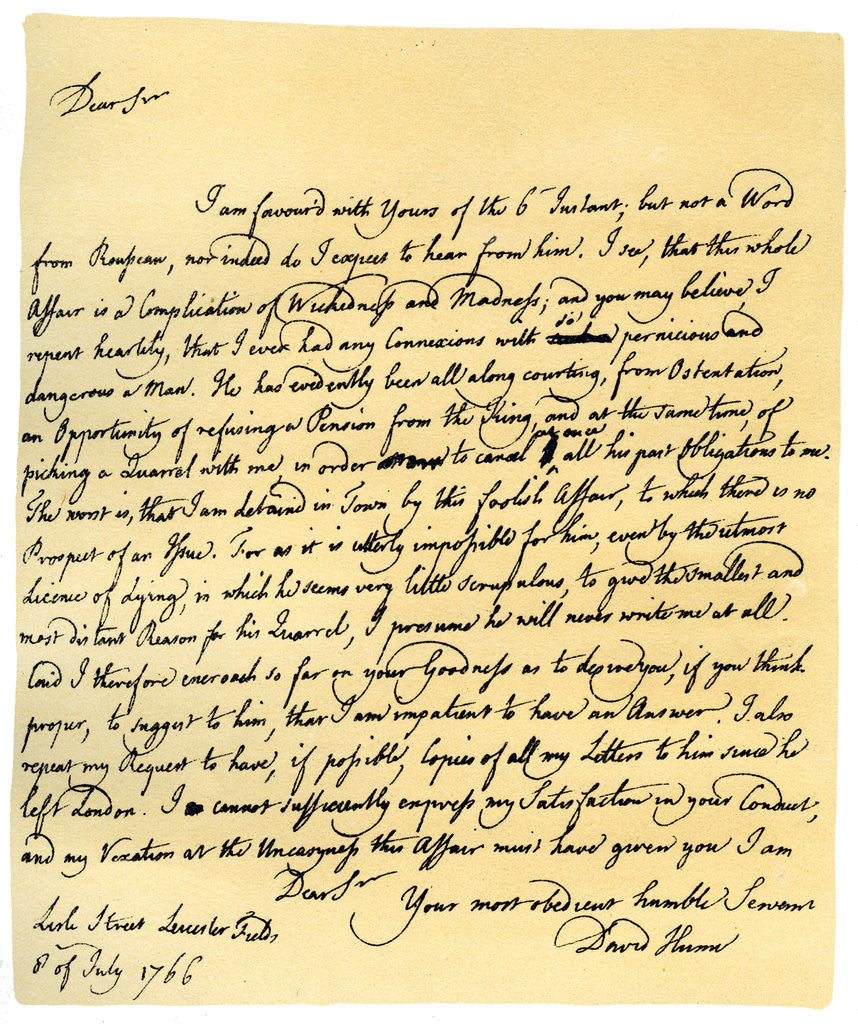 Dear Sir
I am favour'd with Yours of the 6 Instant; but not a Word
from Rousseau, nor indeed do I expect to hear from him. I see, that this whole
Affair is a Complication of Wickedness and Madness; and you may believe, I
repent heartily, that I ever had any Connexions with so pernicious and
dangerous a Man. He has evidently been all along courting, from Ostentation,
an Opportunity of refusing a Pension from the King, and at the same time, of
picking a Quarrel with me, in order to cancel at once all his past Obligations to me.
The worst is, that I am detain'd in Town by this foolish Affair, to which there is no
Prospect of an Issue. For as it is utterly impossible for him, even by the utmost
Licence of Lying, in which he seems very little scrupulous, to give the smallest and
most distant Reason for his Quarrel, I presume he will never write me at all.
Coud I therefore encroach so far on your Goodness as to desire you, if you think
proper, to suggest to him, that I am impatient to have an Answer. I also
repeat my Request to have, if possible, Copies of all my Letters to him since he
left London. I cannot sufficiently express my Satisfaction in your Conduct,
and my Vexation at the Uneasyness this Affair must have given you I am
Dear Sir
Your most obedient humble Servant
David Hume
Lisle Street Leicester Fields
8 of July 1766